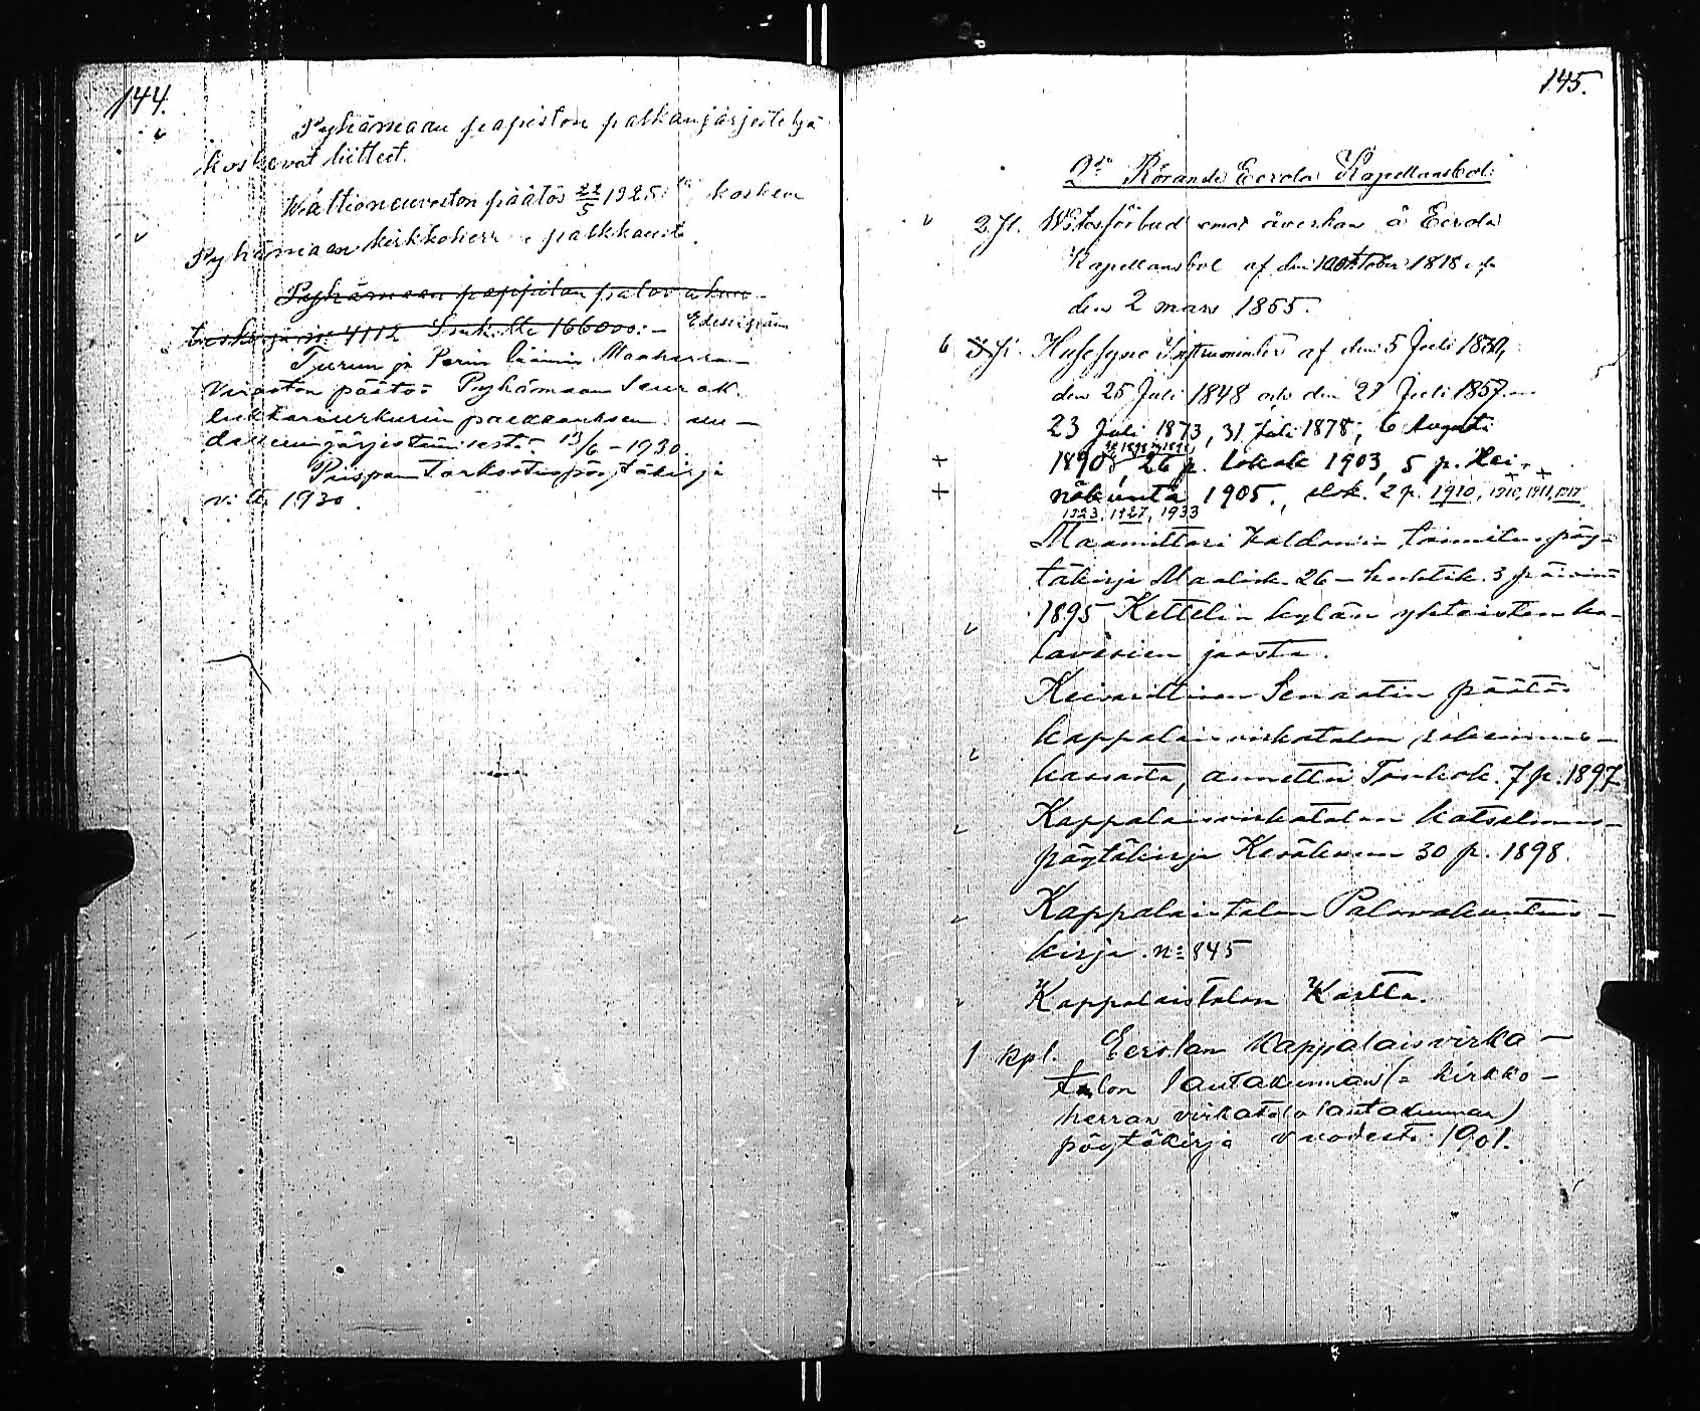 144.
Pyhämaan papiston palkanjärjestelyä
koskevat liitteet.
Valtioneuvoston päätös 22/5 1925 koskeva
Pyhämaan kirkkoherr palkkausta.
Pyhämaan pappilan palovakuu-
tuskirja no: 4112 Smk:lle 166000:-
Turun ja Porin läänin Maaherran-
viraston päätös Pyhämaan seurak.
lukkariurkurin palkkauksen uu-
delleenjärjestämisestä 13/6 - 1930.
Piispantarkastuspöytäkirja
v:lta 1930.
145.
2:do Rörande Eerola Kapellansbol:
2 st. Vitesförbud emot åverkan å Eerola
Kapellansbol af den 10 October 1818 och
den 2 mars 1855.
6 st. Husesyns Instrumenter af den 5 Juli 1830,
den 25 Juli 1848 och den 27 Juli 1857
23 Juli 1873, 31 Juli 1878, 6 Augusti
1890 26 p. Lokak 1903, 5 p. Hei-
näkuuta 1905., elok. 2 p. 1910, 1910, 1911, 1917
1923, 1927, 1933
Maamittari toimitus pöy-
täkirja Maalisk. 26 - huhtik. 3 päivinä
1895 Kettelin kylän yhteisten ka-
lavesien jaosta.
Keisarillisen Senaatin päätös
kappalaisvirkatalon rakennus-
kassasta, annettu Toukok. 7 p. 1897
Kappalaisvirkatalon katselmus-
pöytäkirja Kesäkuun 30 p. 1898.
Kappalaistalon Palovakuutus-
kirja. no: 845
Kappalaistalon Kartta.
1 kpl. Eerolan Kappalaisvirka-
talon lautakunnan (= kirkko-
herran virkatalo lautakunnan)
pöytäkirja vuodesta 1901.